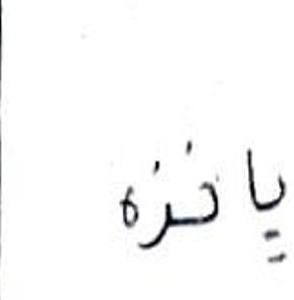 یانزه